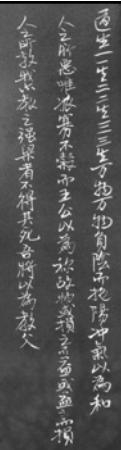 道生一一生二二生三三生万物万物負陰而抱陽冲氣以為和
人之所惡唯孤寡不穀而王公以為称故物或損之而益或益之而損
人之所教我亦教之强梁者不得其死吾将以為教父